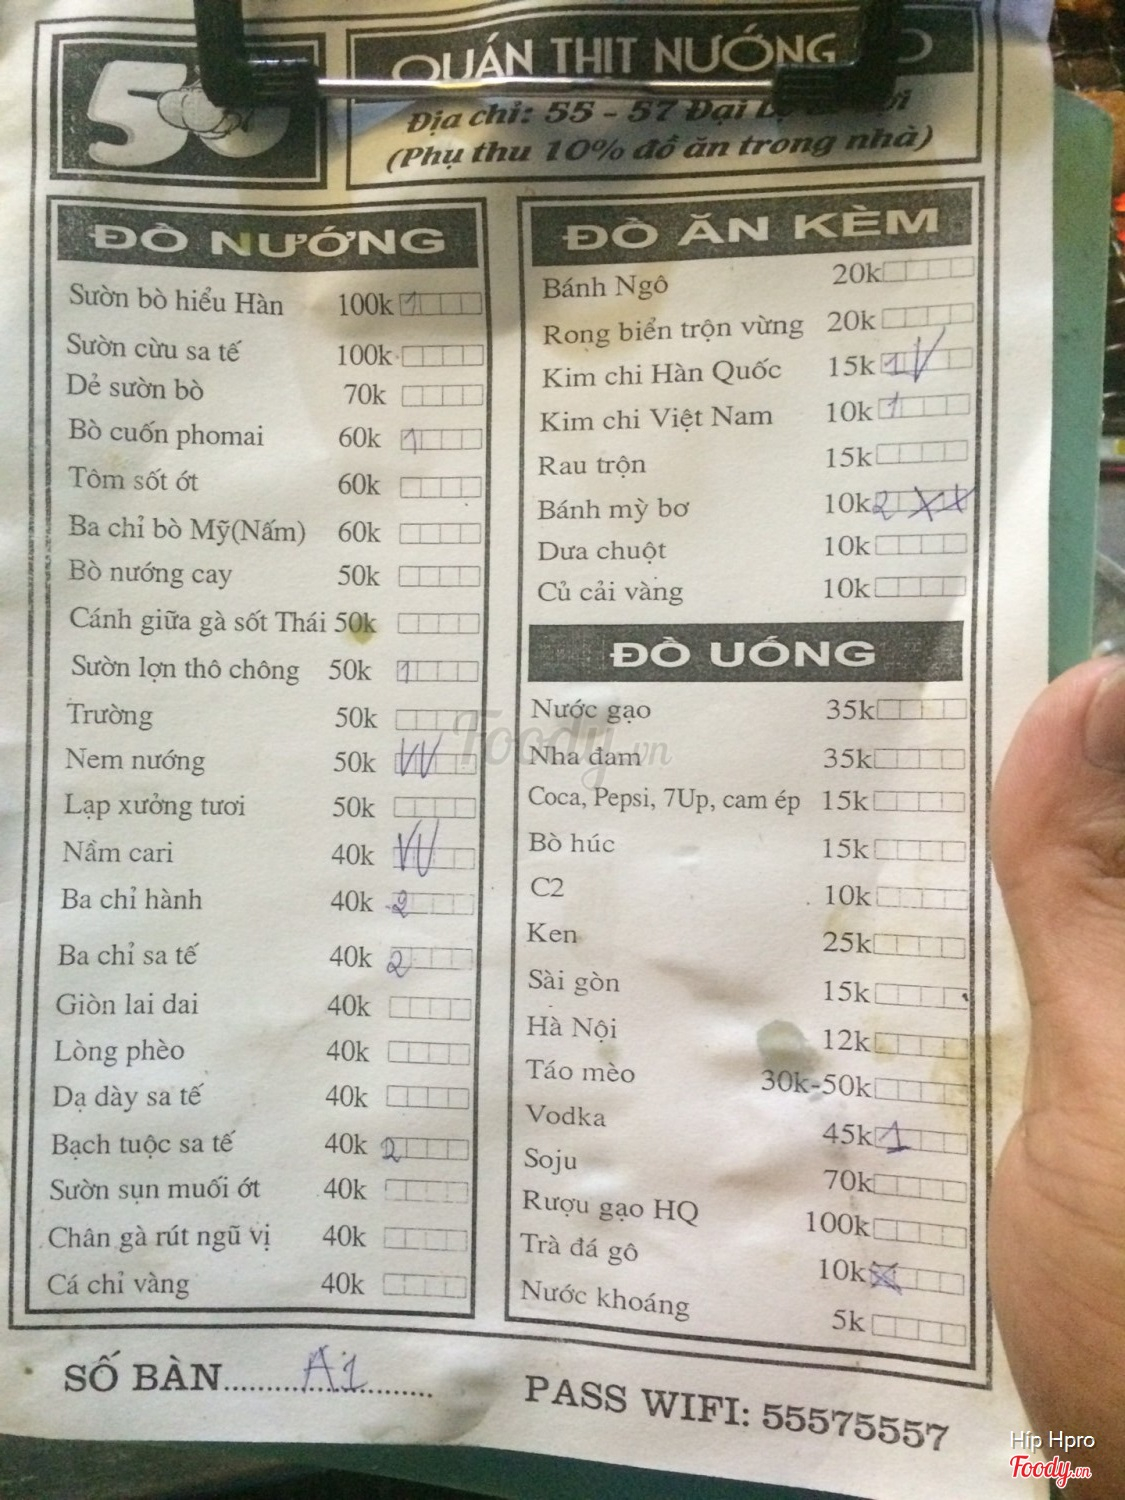 50
QUÁN THỊT NƯỚNG
Địa chỉ: 55 - 57 Đại
(Phụ thu 10% đồ ăn trong nhà)
ĐỒ NƯỚNG
Sườn bò hiểu Hàn 100k 1
Sườn cừu sa tế 100k
Dẻ sườn bò 70k
Bò cuốn phomai 60k 1
Tôm sốt ớt 60k
Ba chỉ bò Mỹ(Nấm) 60k
Bò nướng cay 50k
Cánh giữa gà sốt Thái 50k
Sườn lợn thô chông 50k 1
Trường 50k
Nem nướng 50k VV
Lạp xưởng tươi 50k
Nầm cari 40k VV
Ba chỉ hành 40k 2
Ba chỉ sa tế 40k 2
Giòn lai dai 40k
Lòng phèo 40k
Dạ dày sa tế 40k
Bạch tuộc sa tế 40k 2
Sườn sụn muối ớt 40k
Chân gà rút ngũ vị 40k
Cá chỉ vàng 40k
ĐỒ ĂN KÈM
Bánh Ngô 20k
Rong biển trộn vừng 20k
Kim chi Hàn Quốc 15k 1 V
Kim chi Việt Nam 10k 1
Rau trộn 15k
Bánh mỳ bơ 10k 2
Dưa chuột 10k
Củ cải vàng 10k
ĐỒ UỐNG
Nước gạo 35k
Nha đam 35k
Coca, Pepsi, 7Up, cam ép 15k
Bò húc 15k
C2 10k
Ken 25k
Sài gòn 15k
Hà Nội 12k
Táo mèo 30k-50k
Vodka 45k 1
Soju 70k
Rượu gạo HQ 100k
Trà đá gô 10k
Nước khoáng 5k
SỐ BÀN.......A1.......
PASS WIFI: 55575557
Foody.vn
Híp Hpro
Foody.vn